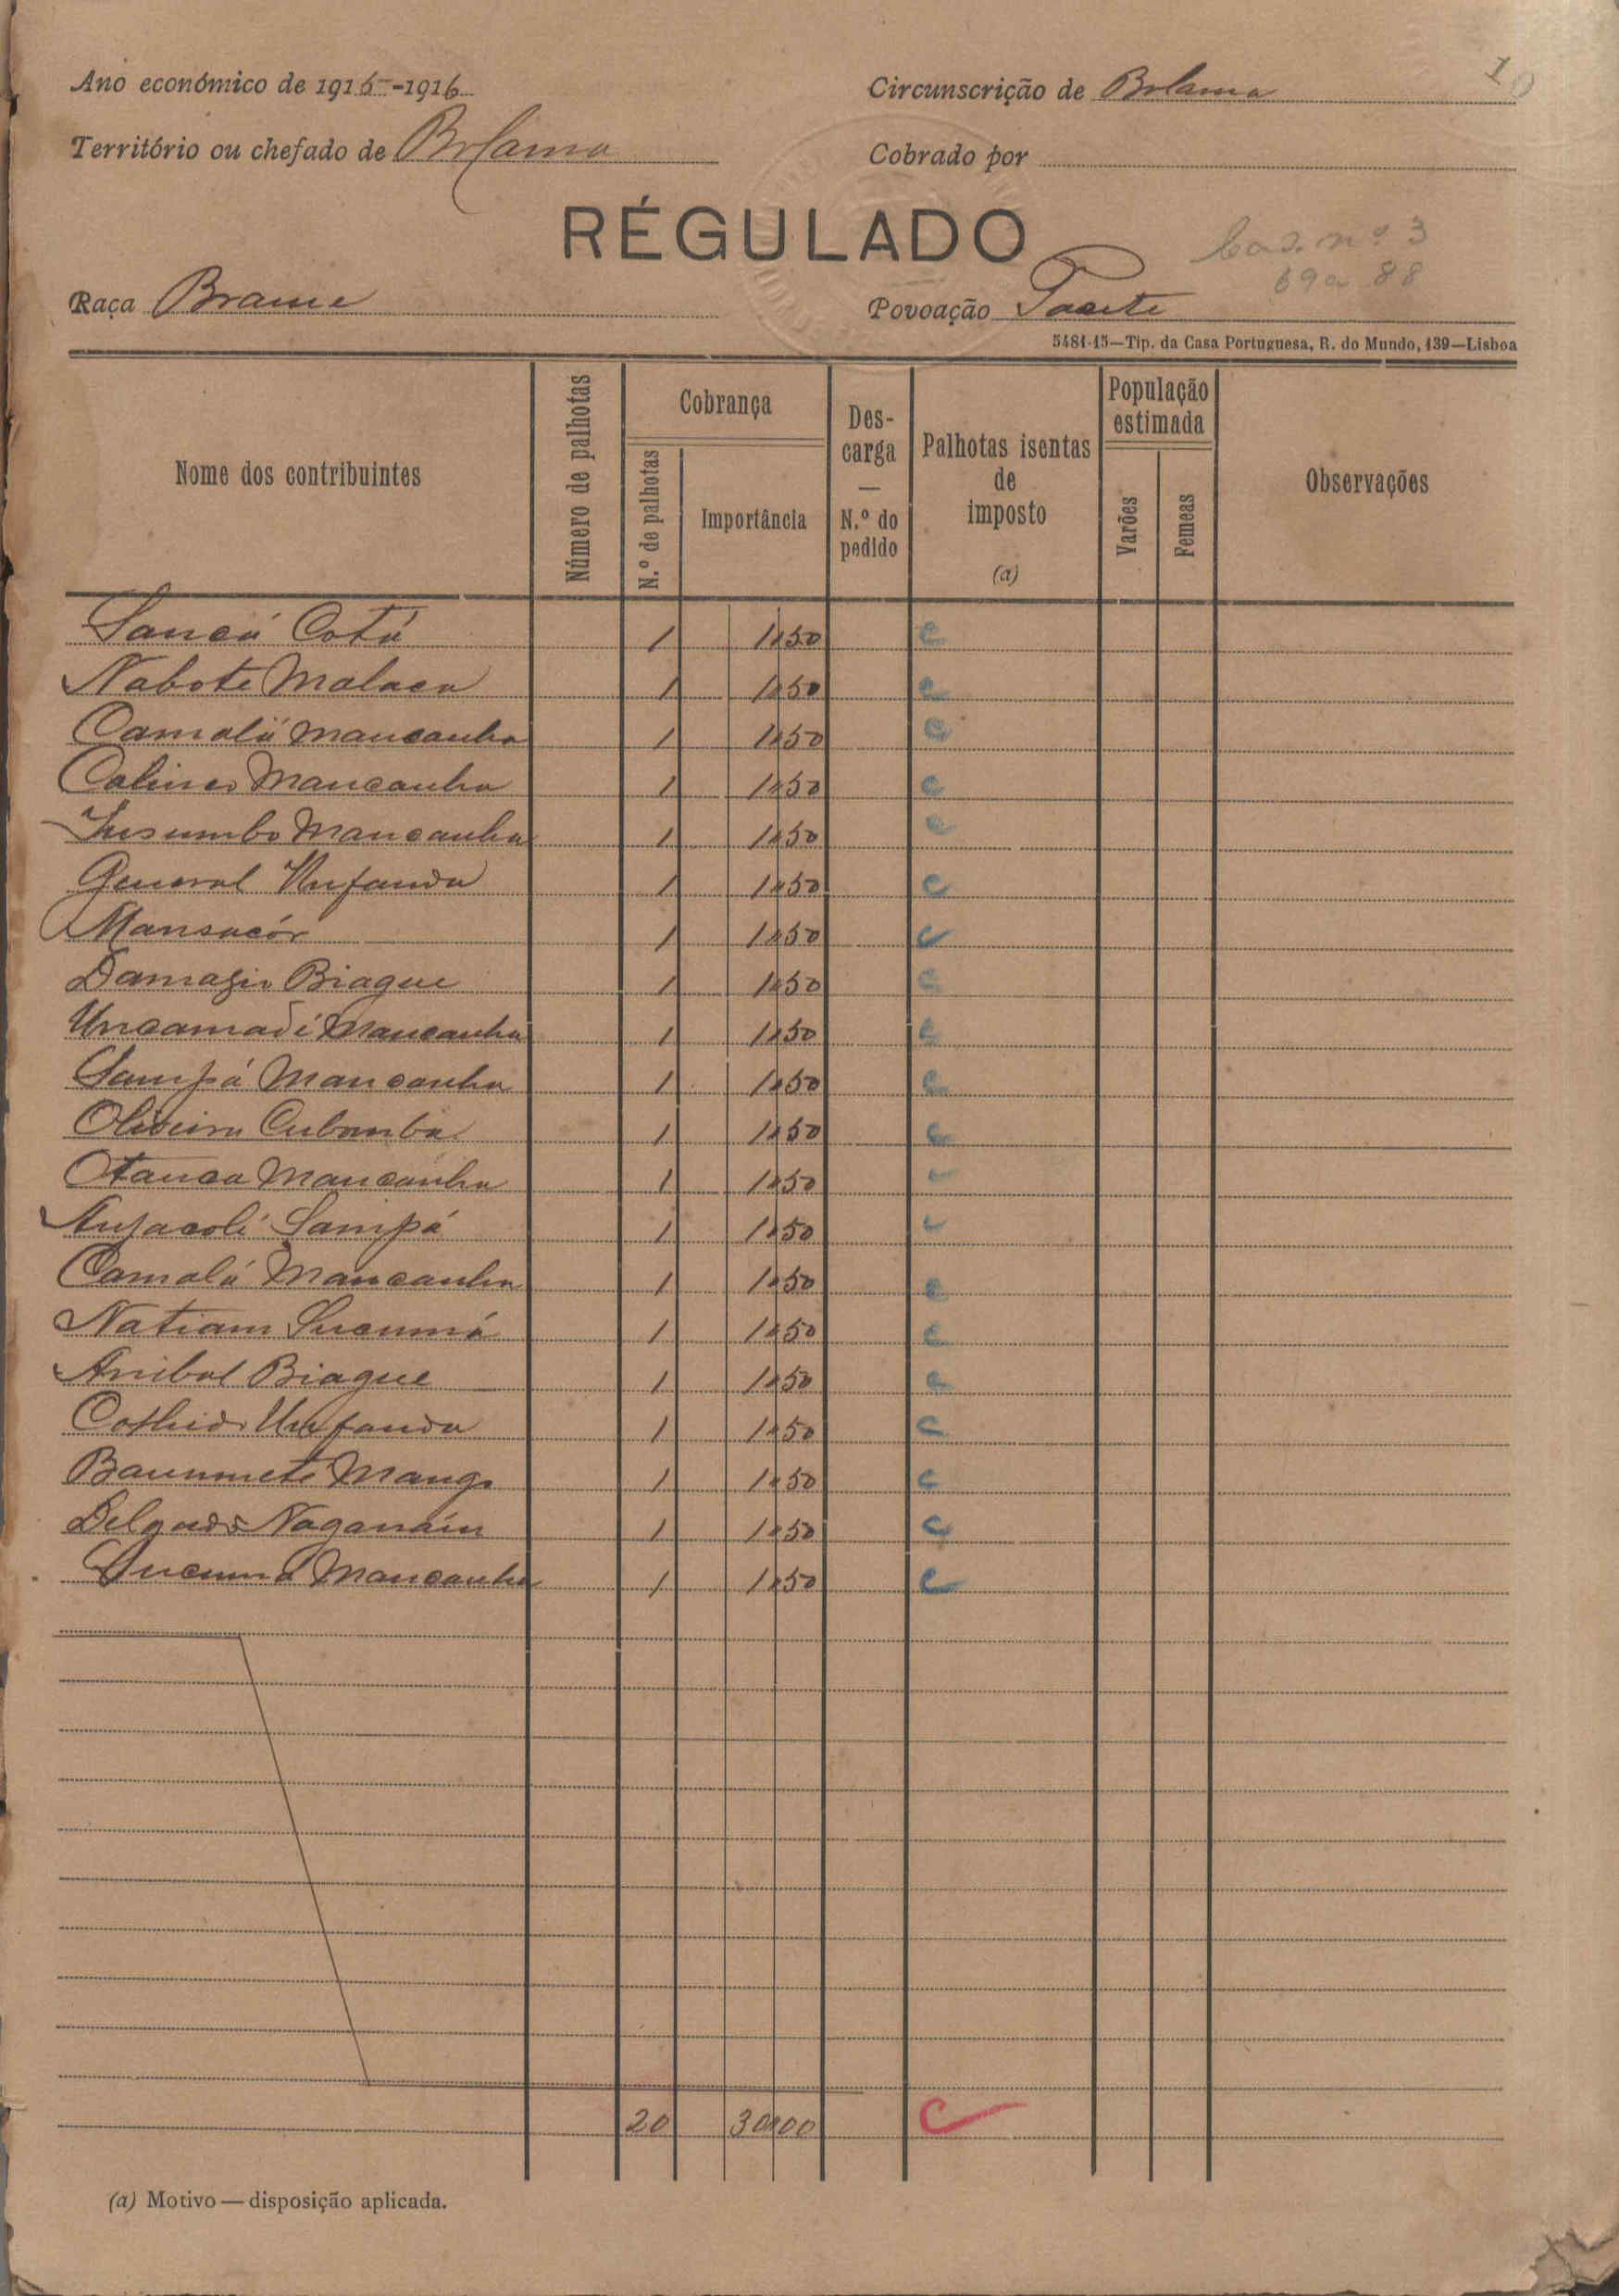 10
Ano económico de 1915-1916 Circunscrição de Bolama
Território ou chefado de Bolama Cobrado por
RÉGULADO
Cad. nº 3
69 a 88
Raça Brame Povoação
5481-15—Tip. da Casa Portuguesa, R. do Mundo, 139—Lisboa
Nome dos contribuintes Número de palhotas Cobrança N.º de palhotas Importância Des-carga — N.º do pedido Palhotas isentas de imposto (a) População estimada Varões Femeas Observações
Sancá Cotá 1 1$50 c
Nabote Malaca 1 1$50 c
Camalá Mancanha 1 1$50 c
Mancanha 1 1$50 c
Mancanha 1 1$50 c
General Unfanda 1 1$50 c
Mansucór 1 1$50 c
Damazio Biague 1 1$50 c
Uncamadi Mancanha 1 1$50 c
Sampá Mancanha 1 1$50 c
Oliveira Cubamba 1 1$50 c
Otanca Mancanha 1 1$50 c
Anjacoli Sampá 1 1$50 c
Camalá Mancanha 1 1$50 c
Natiam Sucumá 1 1$50 c
Anibal Biague 1 1$50 c
Unfanda 1 1$50 c
Mango 1 1$50 c
Delgado Naganain 1 1$50 c
Sucumá Mancanha 1 1$50 c
20 30$00 C
(a) Motivo — disposição aplicada.